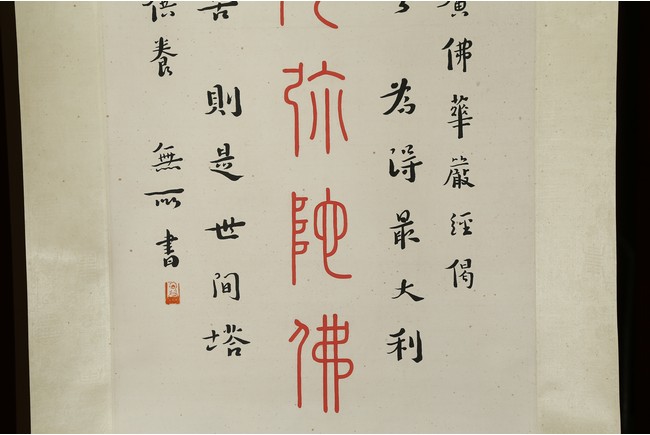 廣佛華嚴經偈
為得最大利
弥陀佛
苦則是世間塔
供養 無所書